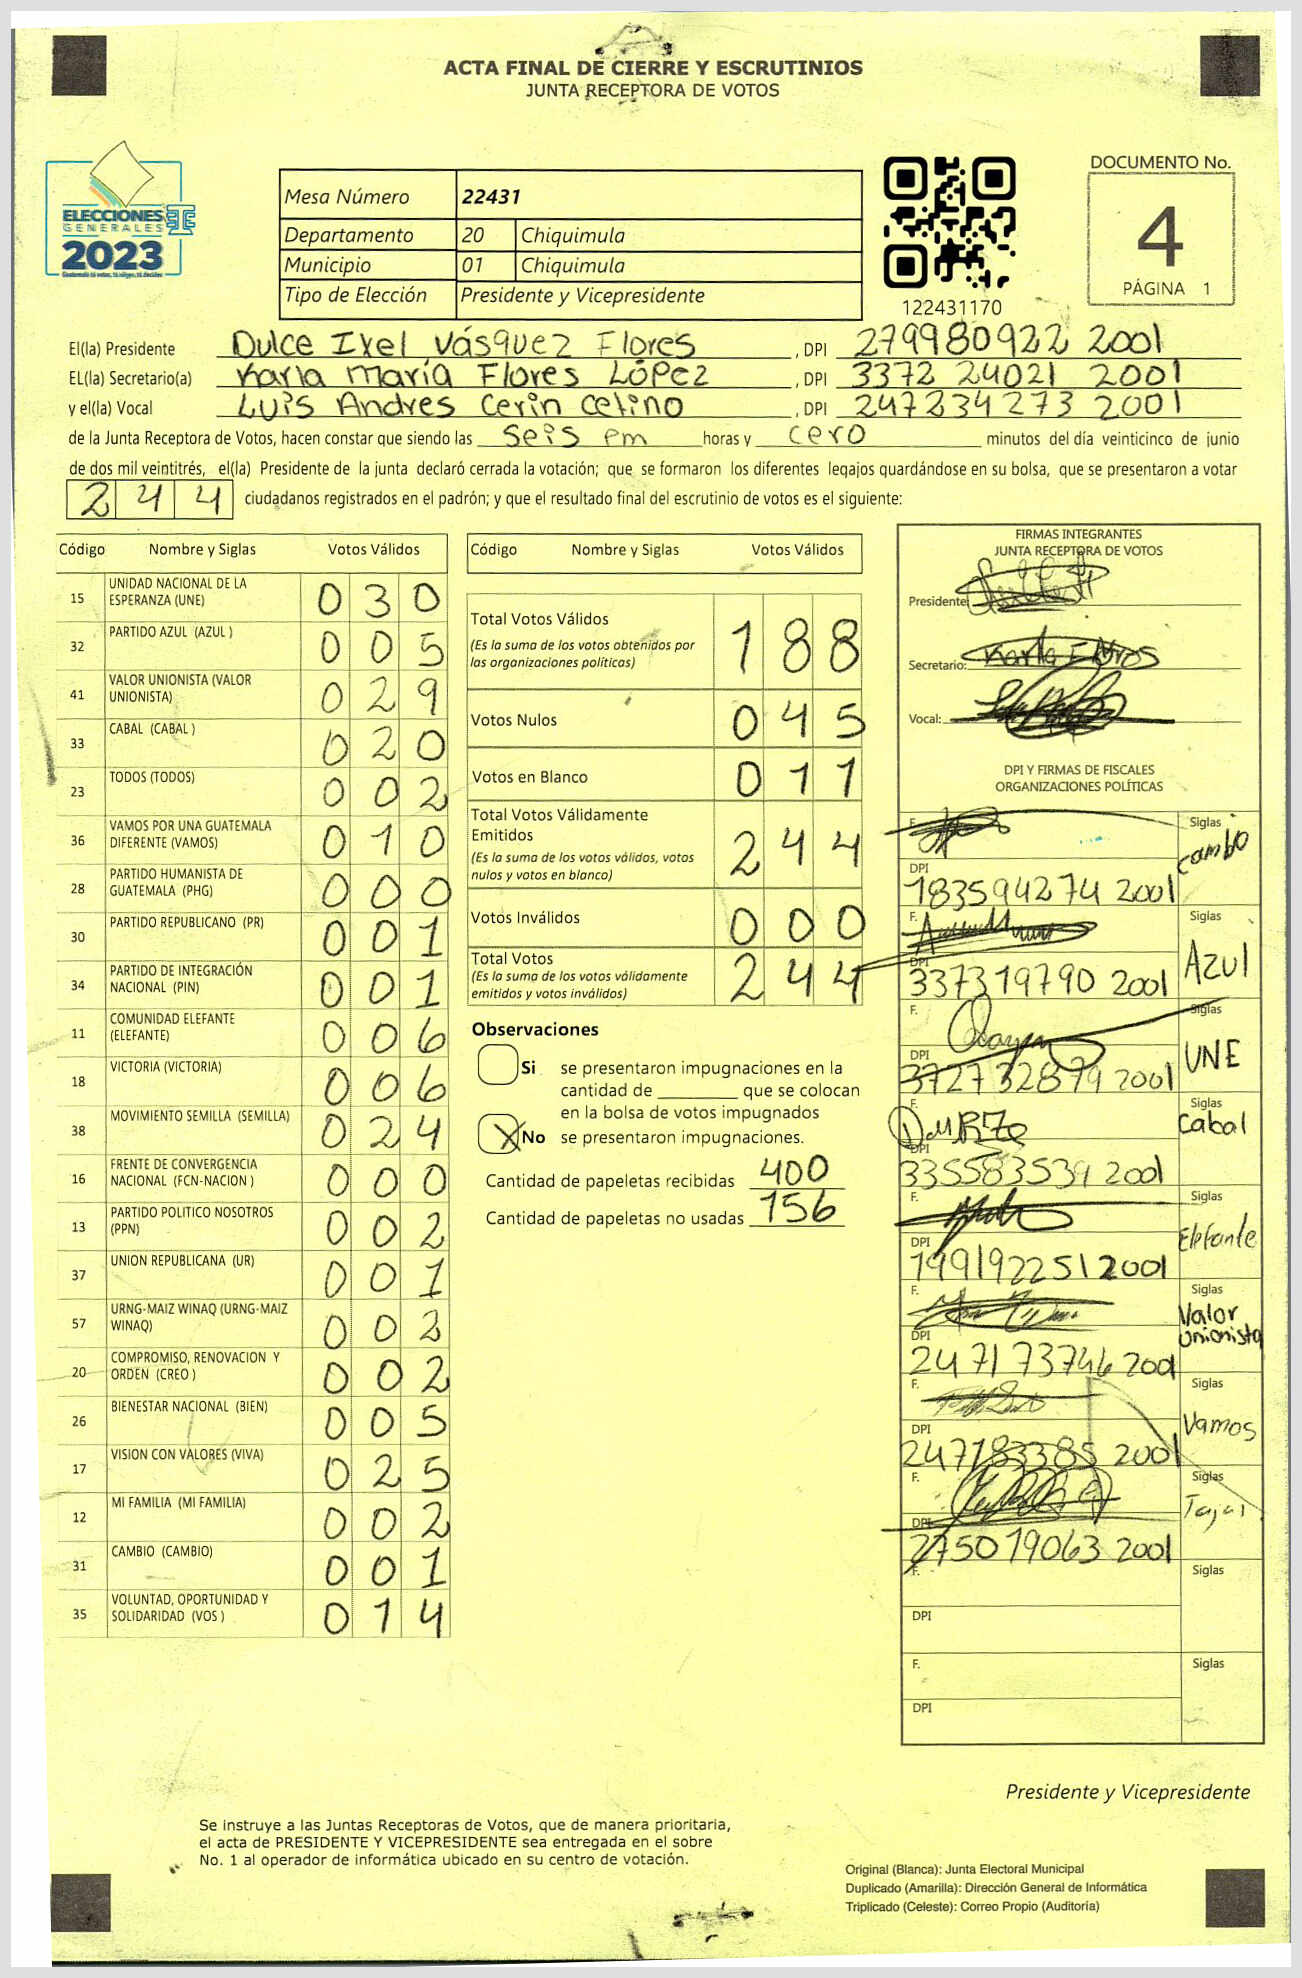 ACTA FINAL DE CIERRE Y ESCRUTINIOS
JUNTA RECEPTORA DE VOTOS
ELECCIONES
GENERALES
2023
Guatemala tú votas, tú eliges, tú decides
Mesa Número 22431
Departamento 20 Chiquimula
Municipio 01 Chiquimula
Tipo de Elección Presidente y Vicepresidente
122431170
DOCUMENTO No.
4
PÁGINA 1
El(la) Presidente Dulce Ixel Vásquez Flores , DPI 279980922 2001
EL(la) Secretario(a) Karla María Flores López , DPI 3372 24021 2001
y el(la) Vocal Luis Andres Cerin Cetino , DPI 247234273 2001
de la Junta Receptora de Votos, hacen constar que siendo las seis pm horas y cero minutos del día veinticinco de junio
de dos mil veintitrés, el(la) Presidente de la junta declaró cerrada la votación; que se formaron los diferentes legajos quardándose en su bolsa, que se presentaron a votar
244 ciudadanos registrados en el padrón; y que el resultado final del escrutinio de votos es el siguiente:
Código Nombre y Siglas Votos Válidos
15 UNIDAD NACIONAL DE LA ESPERANZA (UNE) 030
32 PARTIDO AZUL (AZUL ) 005
41 VALOR UNIONISTA (VALOR UNIONISTA) 029
33 CABAL (CABAL ) 020
23 TODOS (TODOS) 002
36 VAMOS POR UNA GUATEMALA DIFERENTE (VAMOS) 010
28 PARTIDO HUMANISTA DE GUATEMALA (PHG) 000
30 PARTIDO REPUBLICANO (PR) 001
34 PARTIDO DE INTEGRACIÓN NACIONAL (PIN) 001
11 COMUNIDAD ELEFANTE (ELEFANTE) 006
18 VICTORIA (VICTORIA) 006
38 MOVIMIENTO SEMILLA (SEMILLA) 024
16 FRENTE DE CONVERGENCIA NACIONAL (FCN-NACION ) 000
13 PARTIDO POLITICO NOSOTROS (PPN) 002
37 UNION REPUBLICANA (UR) 001
57 URNG-MAIZ WINAQ (URNG-MAIZ WINAQ) 002
20 COMPROMISO, RENOVACION Y ORDEN (CREO ) 002
26 BIENESTAR NACIONAL (BIEN) 005
17 VISION CON VALORES (VIVA) 025
12 MI FAMILIA (MI FAMILIA) 002
31 CAMBIO (CAMBIO) 001
35 VOLUNTAD, OPORTUNIDAD Y SOLIDARIDAD (VOS ) 014
Código Nombre y Siglas Votos Válidos
Total Votos Válidos 188
(Es la suma de los votos obtenidos por
las organizaciones políticas)
Votos Nulos 045
Votos en Blanco 011
Total Votos Válidamente
Emitidos 244
(Es la suma de los votos válidos, votos
nulos y votos en blanco)
Votos Inválidos 000
Total Votos 244
(Es la suma de los votos válidamente
emitidos y votos inválidos)
Observaciones
Si se presentaron impugnaciones en la
cantidad de ________ que se colocan
en la bolsa de votos impugnados
X No se presentaron impugnaciones.
Cantidad de papeletas recibidas 400
Cantidad de papeletas no usadas 156
FIRMAS INTEGRANTES
JUNTA RECEPTORA DE VOTOS
Presidente:
Secretario: Karla Flores
Vocal:
DPI Y FIRMAS DE FISCALES
ORGANIZACIONES POLÍTICAS
F. Siglas
cambio
DPI
183594274 2001
F. Siglas
Azul
DPI
337319790 2001
F. Siglas
UNE
DPI
372732879 2001
F. Siglas
Cabal
DPI
335583539 2001
F. Siglas
Elefante
DPI
199192251 2001
F. Siglas
Valor
unionista
DPI
247173746 2001
F. Siglas
Vamos
DPI
247183385 2001
F. Siglas
DPI
275019063 2001
F. Siglas
DPI
F. Siglas
DPI
Presidente y Vicepresidente
Se instruye a las Juntas Receptoras de Votos, que de manera prioritaria,
el acta de PRESIDENTE Y VICEPRESIDENTE sea entregada en el sobre
No. 1 al operador de informática ubicado en su centro de votación.
Original (Blanca): Junta Electoral Municipal
Duplicado (Amarilla): Dirección General de Informática
Triplicado (Celeste): Correo Propio (Auditoría)